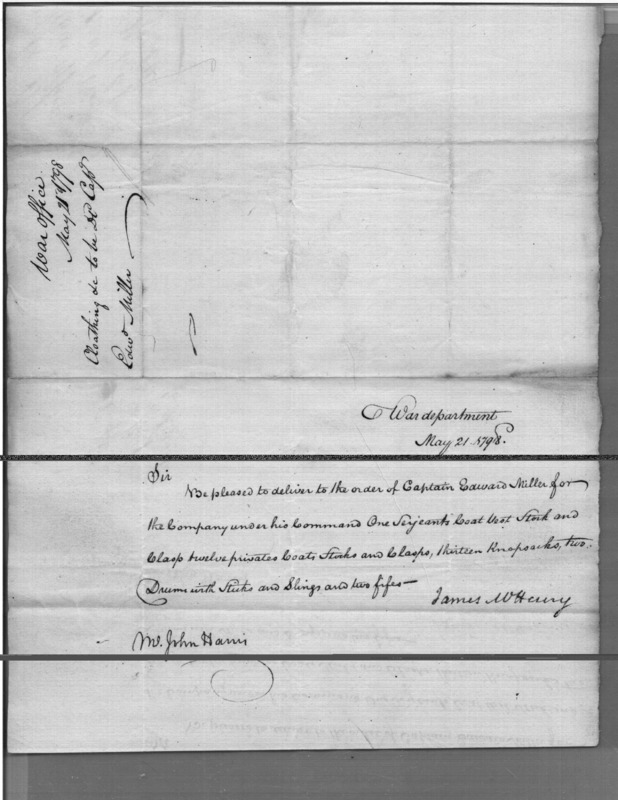 War Office
May 21 1798
Cloathing &c to be Dd Capt
Edwd Miller
War department
May 21. 1798.
Sir
Be pleased to deliver to the order of Captain Edward Miller for
the Company under his Command One Serjeants Coat Vest Stock and
Clasp twelve privates Coats Stocks and Clasps, thirteen Knapsacks, two
Drums with Sticks and Slings and two fifes—
James McHenry
Mr. John Harris